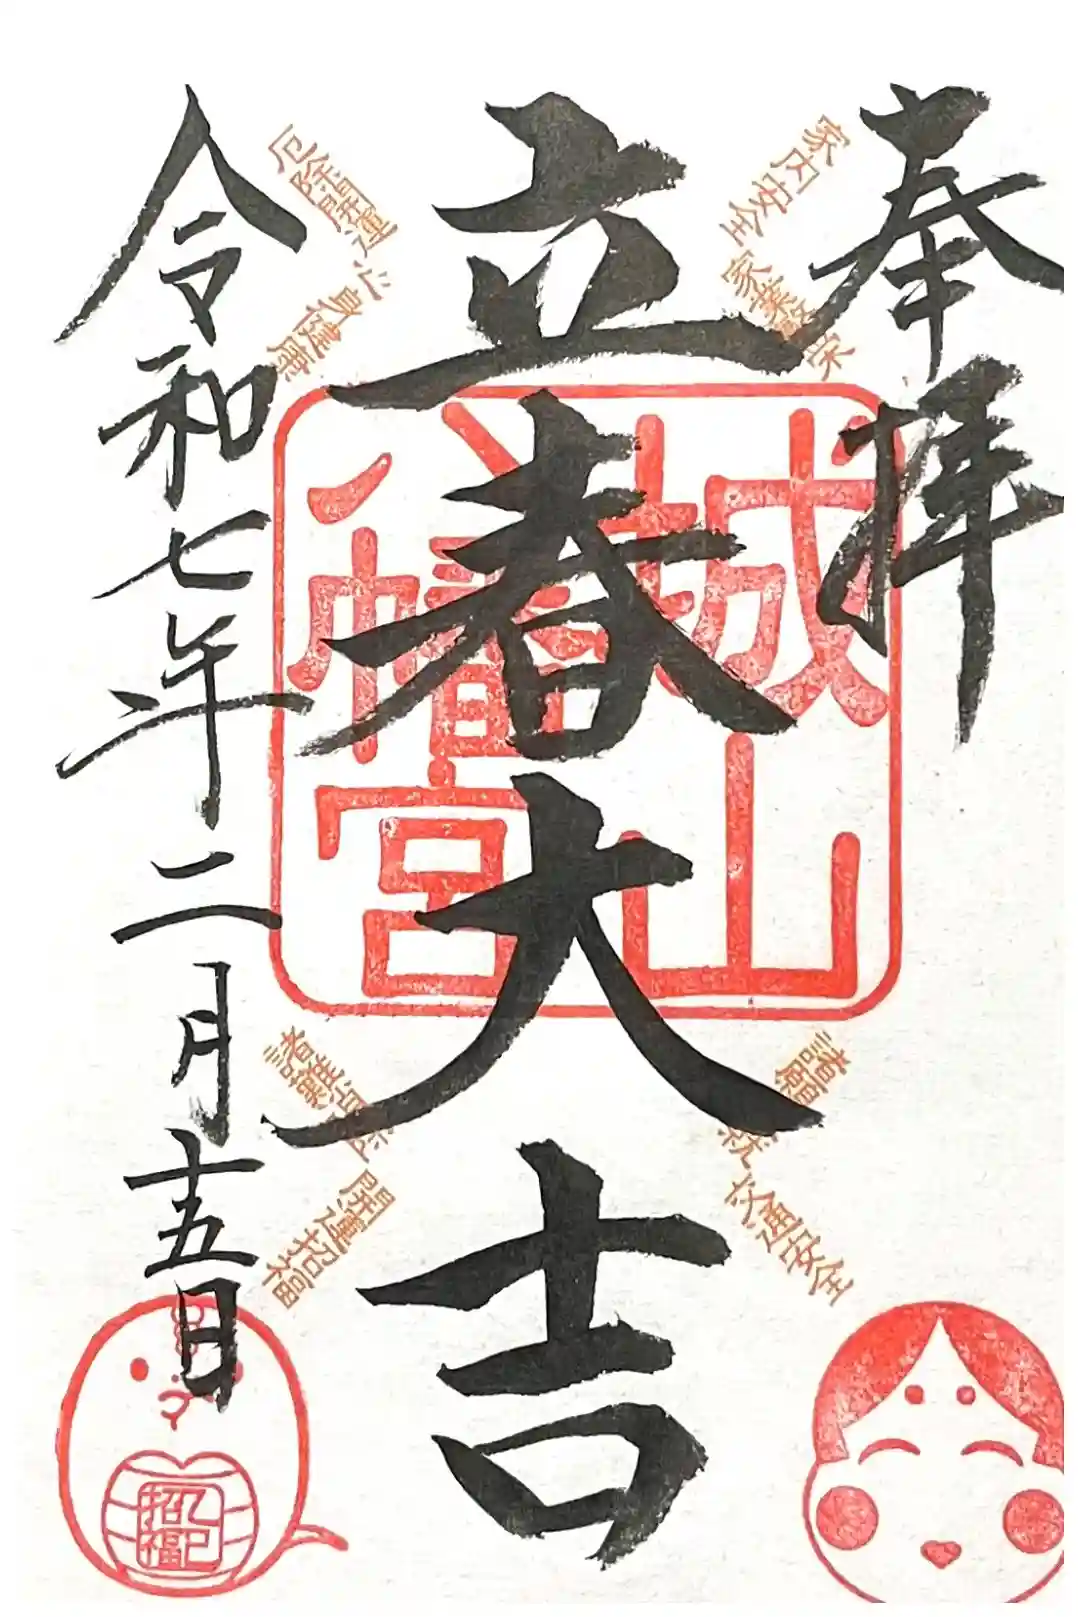 奉拝
家内安全
家業繁栄
諸願成就
交通安全
立春大吉
城山
八幡宮
厄除開運
心身健康
商売繁昌
開運招福
令和七年二月十五日
乙巳
招福